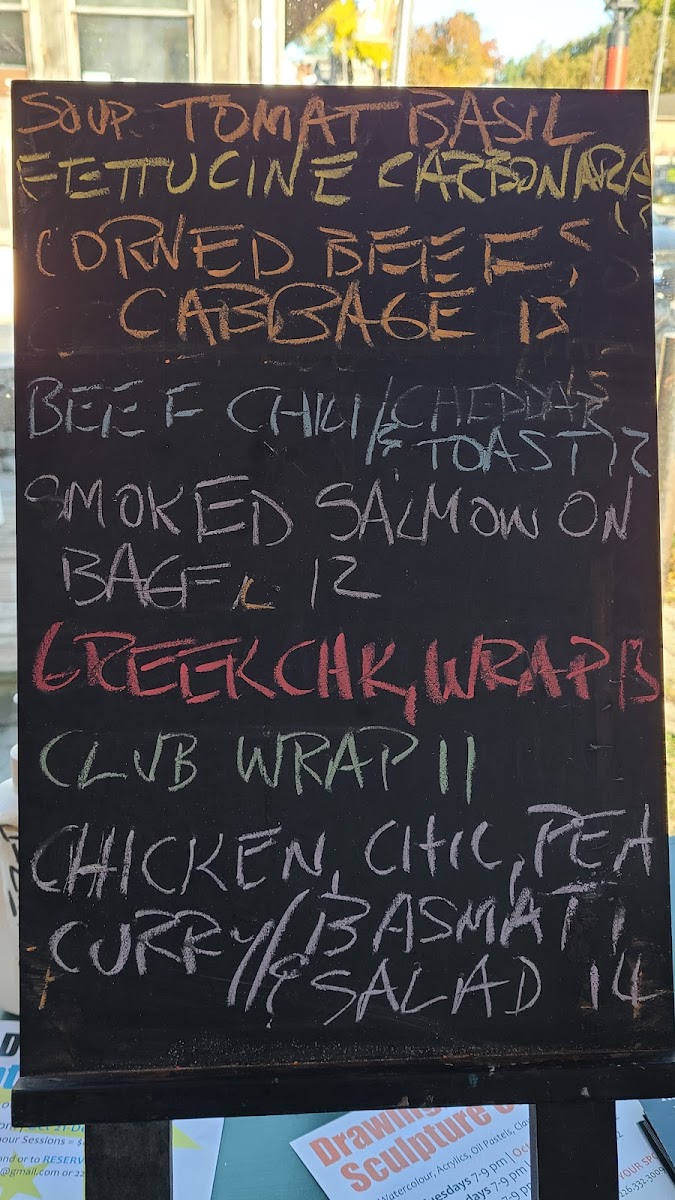 SOUP TOMAT BASIL
FETTUCINE CARBONARA
13
CORNED BEEF &
CABBAGE 13
BEEF CHILI/CHEDDAR
& TOAST 12
SMOKED SALMON ON
BAGEL 12
GREEK CHK, WRAP 13
CLUB WRAP 11
CHICKEN, CHIC, PEA
CURRY/BASMATI
& SALAD 14
Drawing
Sculpture
Watercolour, Acrylics, Oil Pastels, Cla
Tuesdays 7-9 pm | Oc
7-9 pm
our Sessions = $
and or to RESERV
@gmail.com or 22
YOUR SPO